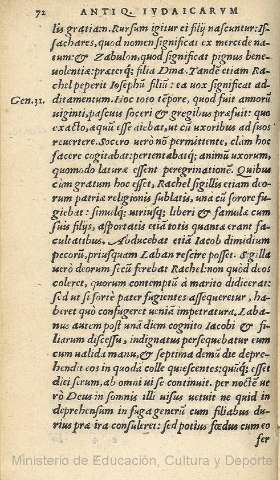 72 ANTIQ. IVDAICARVM
lis gratiam. Rursum igitur ei filij nascuntur: Is-
sachares, quod nomen significat ex mercede na-
tum: & Zabulon, quod significat pignus bene-
volentiæ: præterq; filia Dina. Tandē etiam Ra-
chel peperit Iosephū filiū: ea vox significat ad-
Gen.31. ditamentum. Hoc toto tēpore, quod fuit annorū
viginti, pascuis soceri & gregibus præfuit: quo
exacto, æquū esse aiebat, ut cū uxoribus ad suos
reuertere. Socero verò nō permittente, clam hoc
facere cogitabat: pertentabatq; animū uxorum,
quomodo laturæ essent peregrinationē. Quibus
cum gratum hoc esset, Rachel sigillis etiam deo-
rum patriæ religionis sublatis, una cū sorore fu-
giebat: simulq; utriusq; liberi & famulæ cum
suis filijs, asportatis etiā totis quanta erant fa-
cultatibus. Adducebat etiā Iacob dimidium
pecorū, priusquam Laban rescire posset. Sigilla
verò deorum secū ferebat Rachel: non quòd deos
coleret, quorum contemptū à marito didicerat:
sed ut si fortè pater fugientes assequeretur, ha-
beret quò confugeret veniā impetratura. Laba-
nus autem post unū diem cognito Iacobi & fi-
liarum discessu, indignatus persequebatur eum
cum valida manu, & septima demū die depre-
hendit eos in quodā colle quiescentes: quūq; esset
diei serum, ab omni vi se continuit. per noctē ve
rò Deus in somnis illi visus vetuit ne quid in
deprehensum in fuga generū cum filiabus du-
rius præ ira consuleret: sed potius fœdus cum eo
fer
Ministerio de Educación, Cultura y Deporte